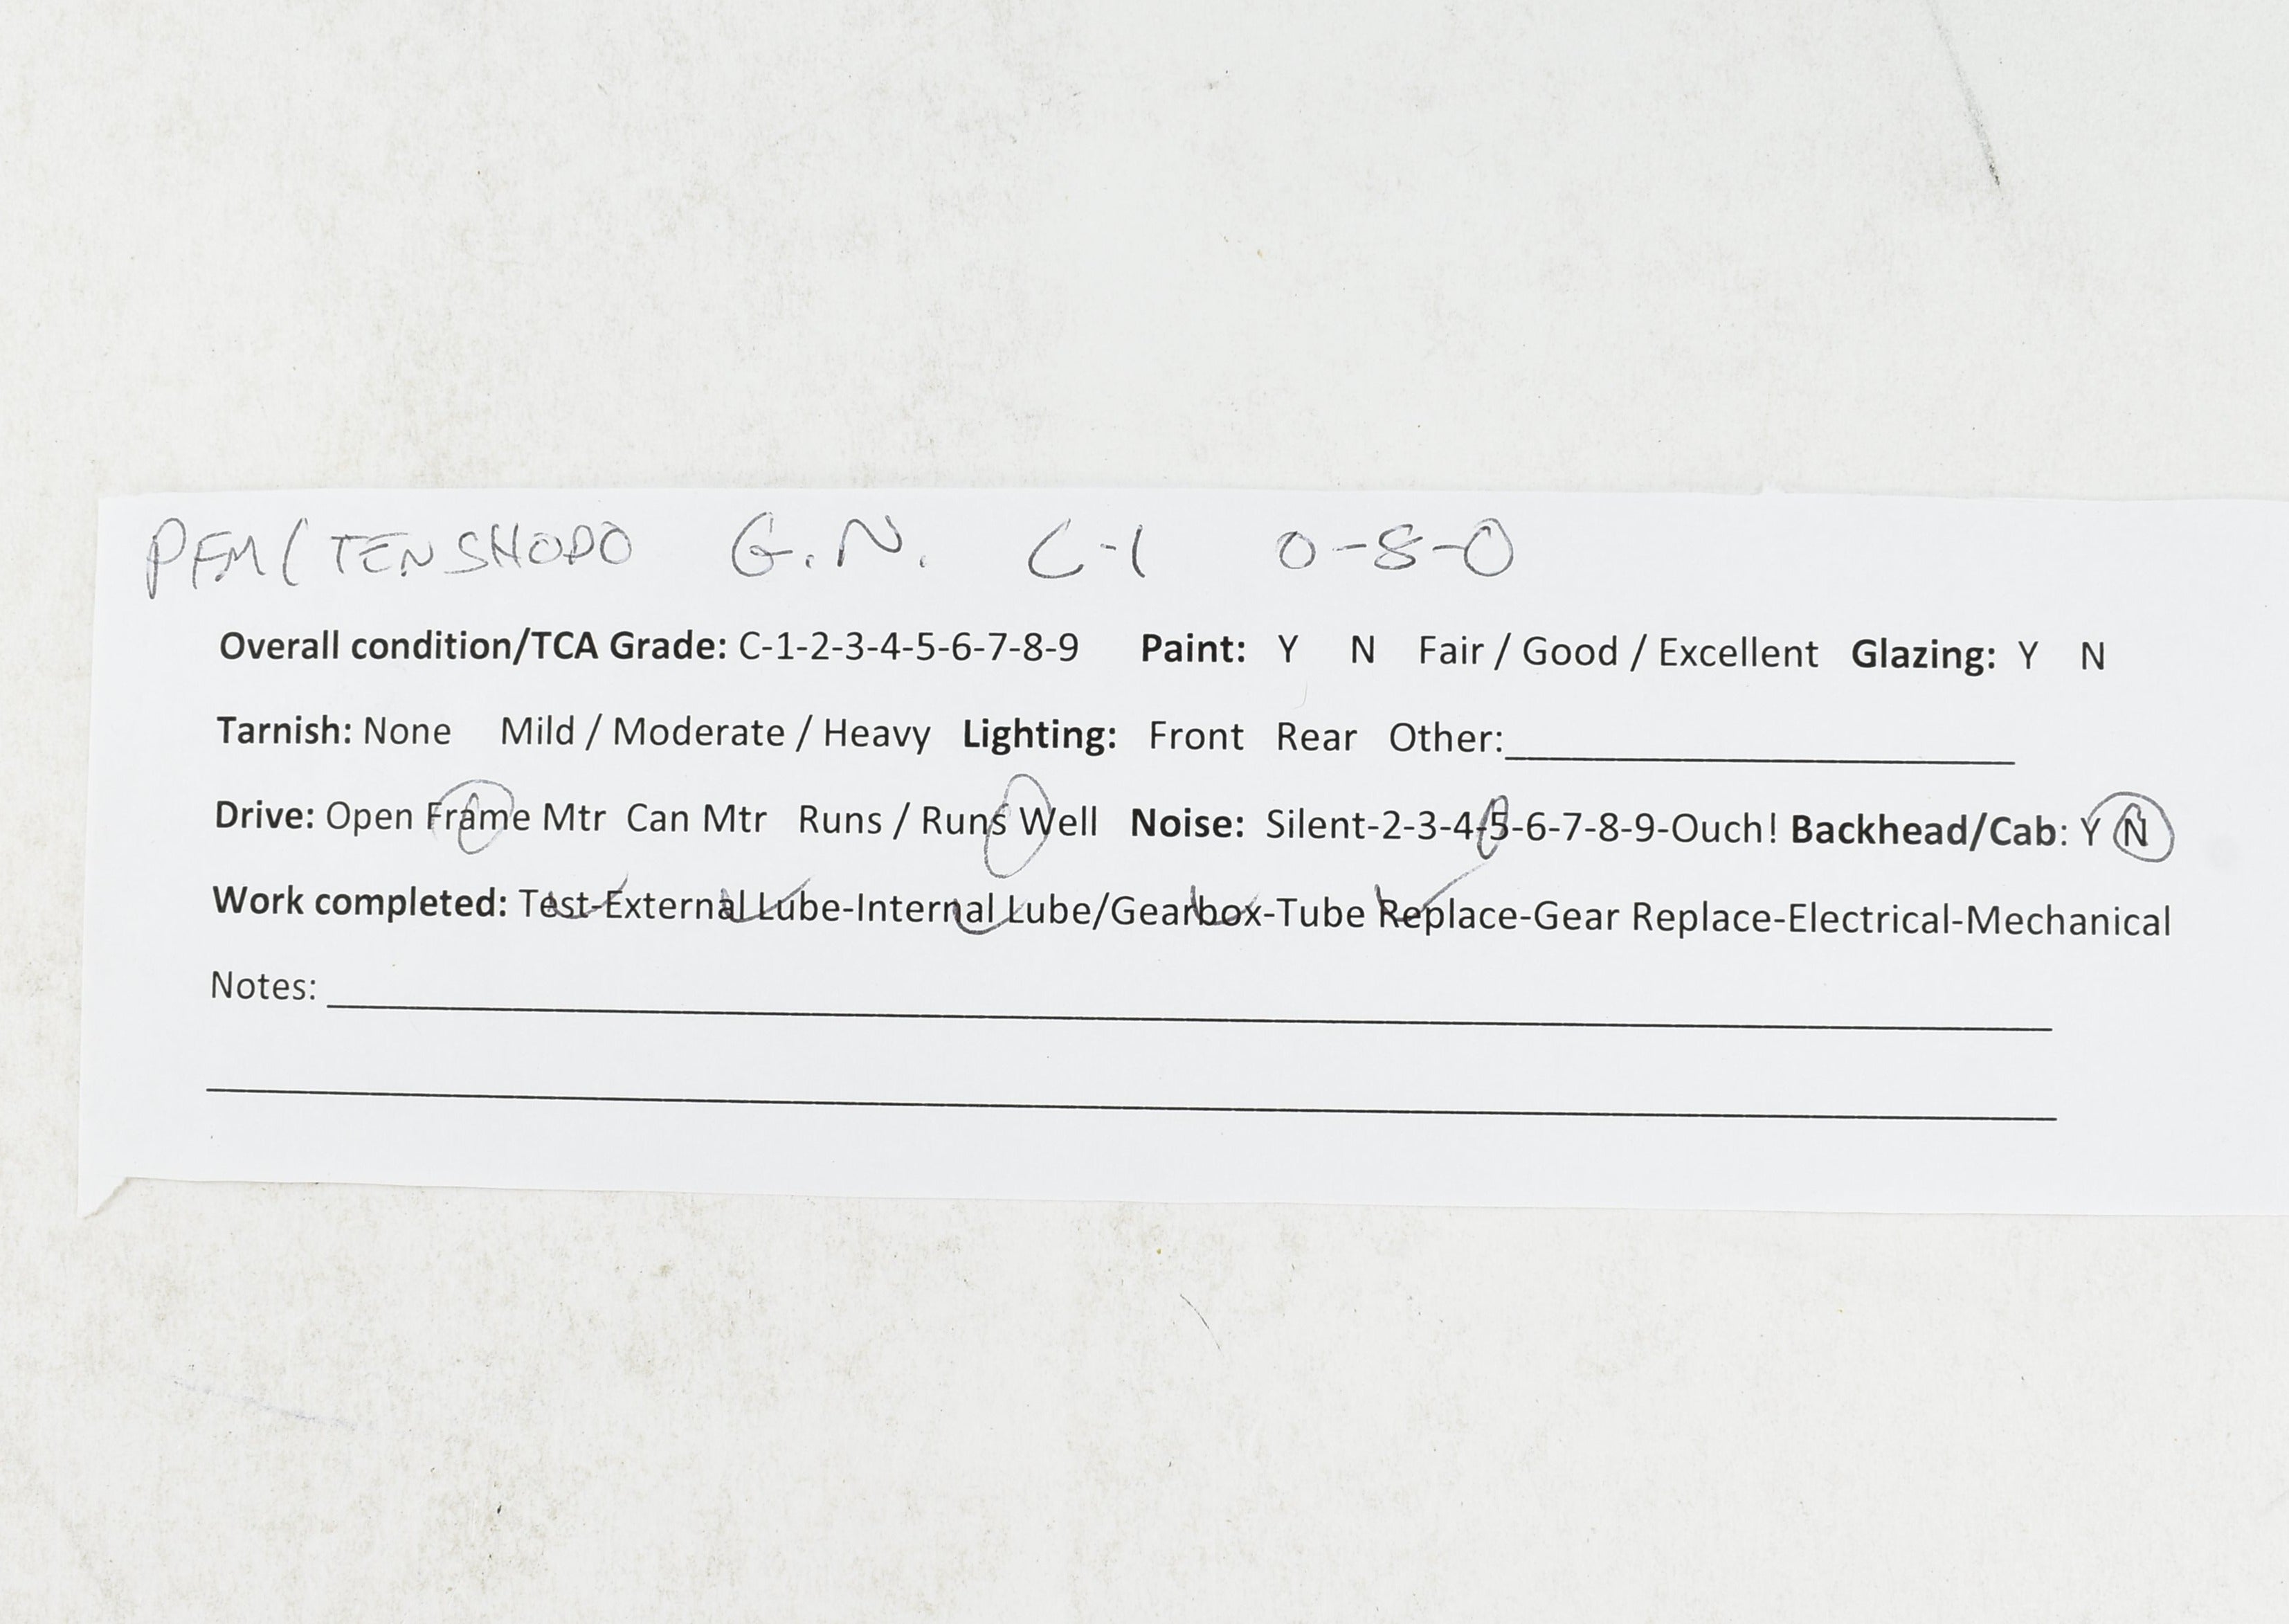 PFM/TENSHODO G.N. C-1 0-8-0
Overall condition/TCA Grade: C-1-2-3-4-5-6-7-8-9 Paint: Y N Fair / Good / Excellent Glazing: Y N
Tarnish: None Mild / Moderate / Heavy Lighting: Front Rear Other:
Drive: Open Frame Mtr Can Mtr Runs / Runs Well Noise: Silent-2-3-4-5-6-7-8-9-Ouch! Backhead/Cab: Y N
Work completed: Test-External Lube-Internal Lube/Gearbox-Tube Replace-Gear Replace-Electrical-Mechanical
Notes: